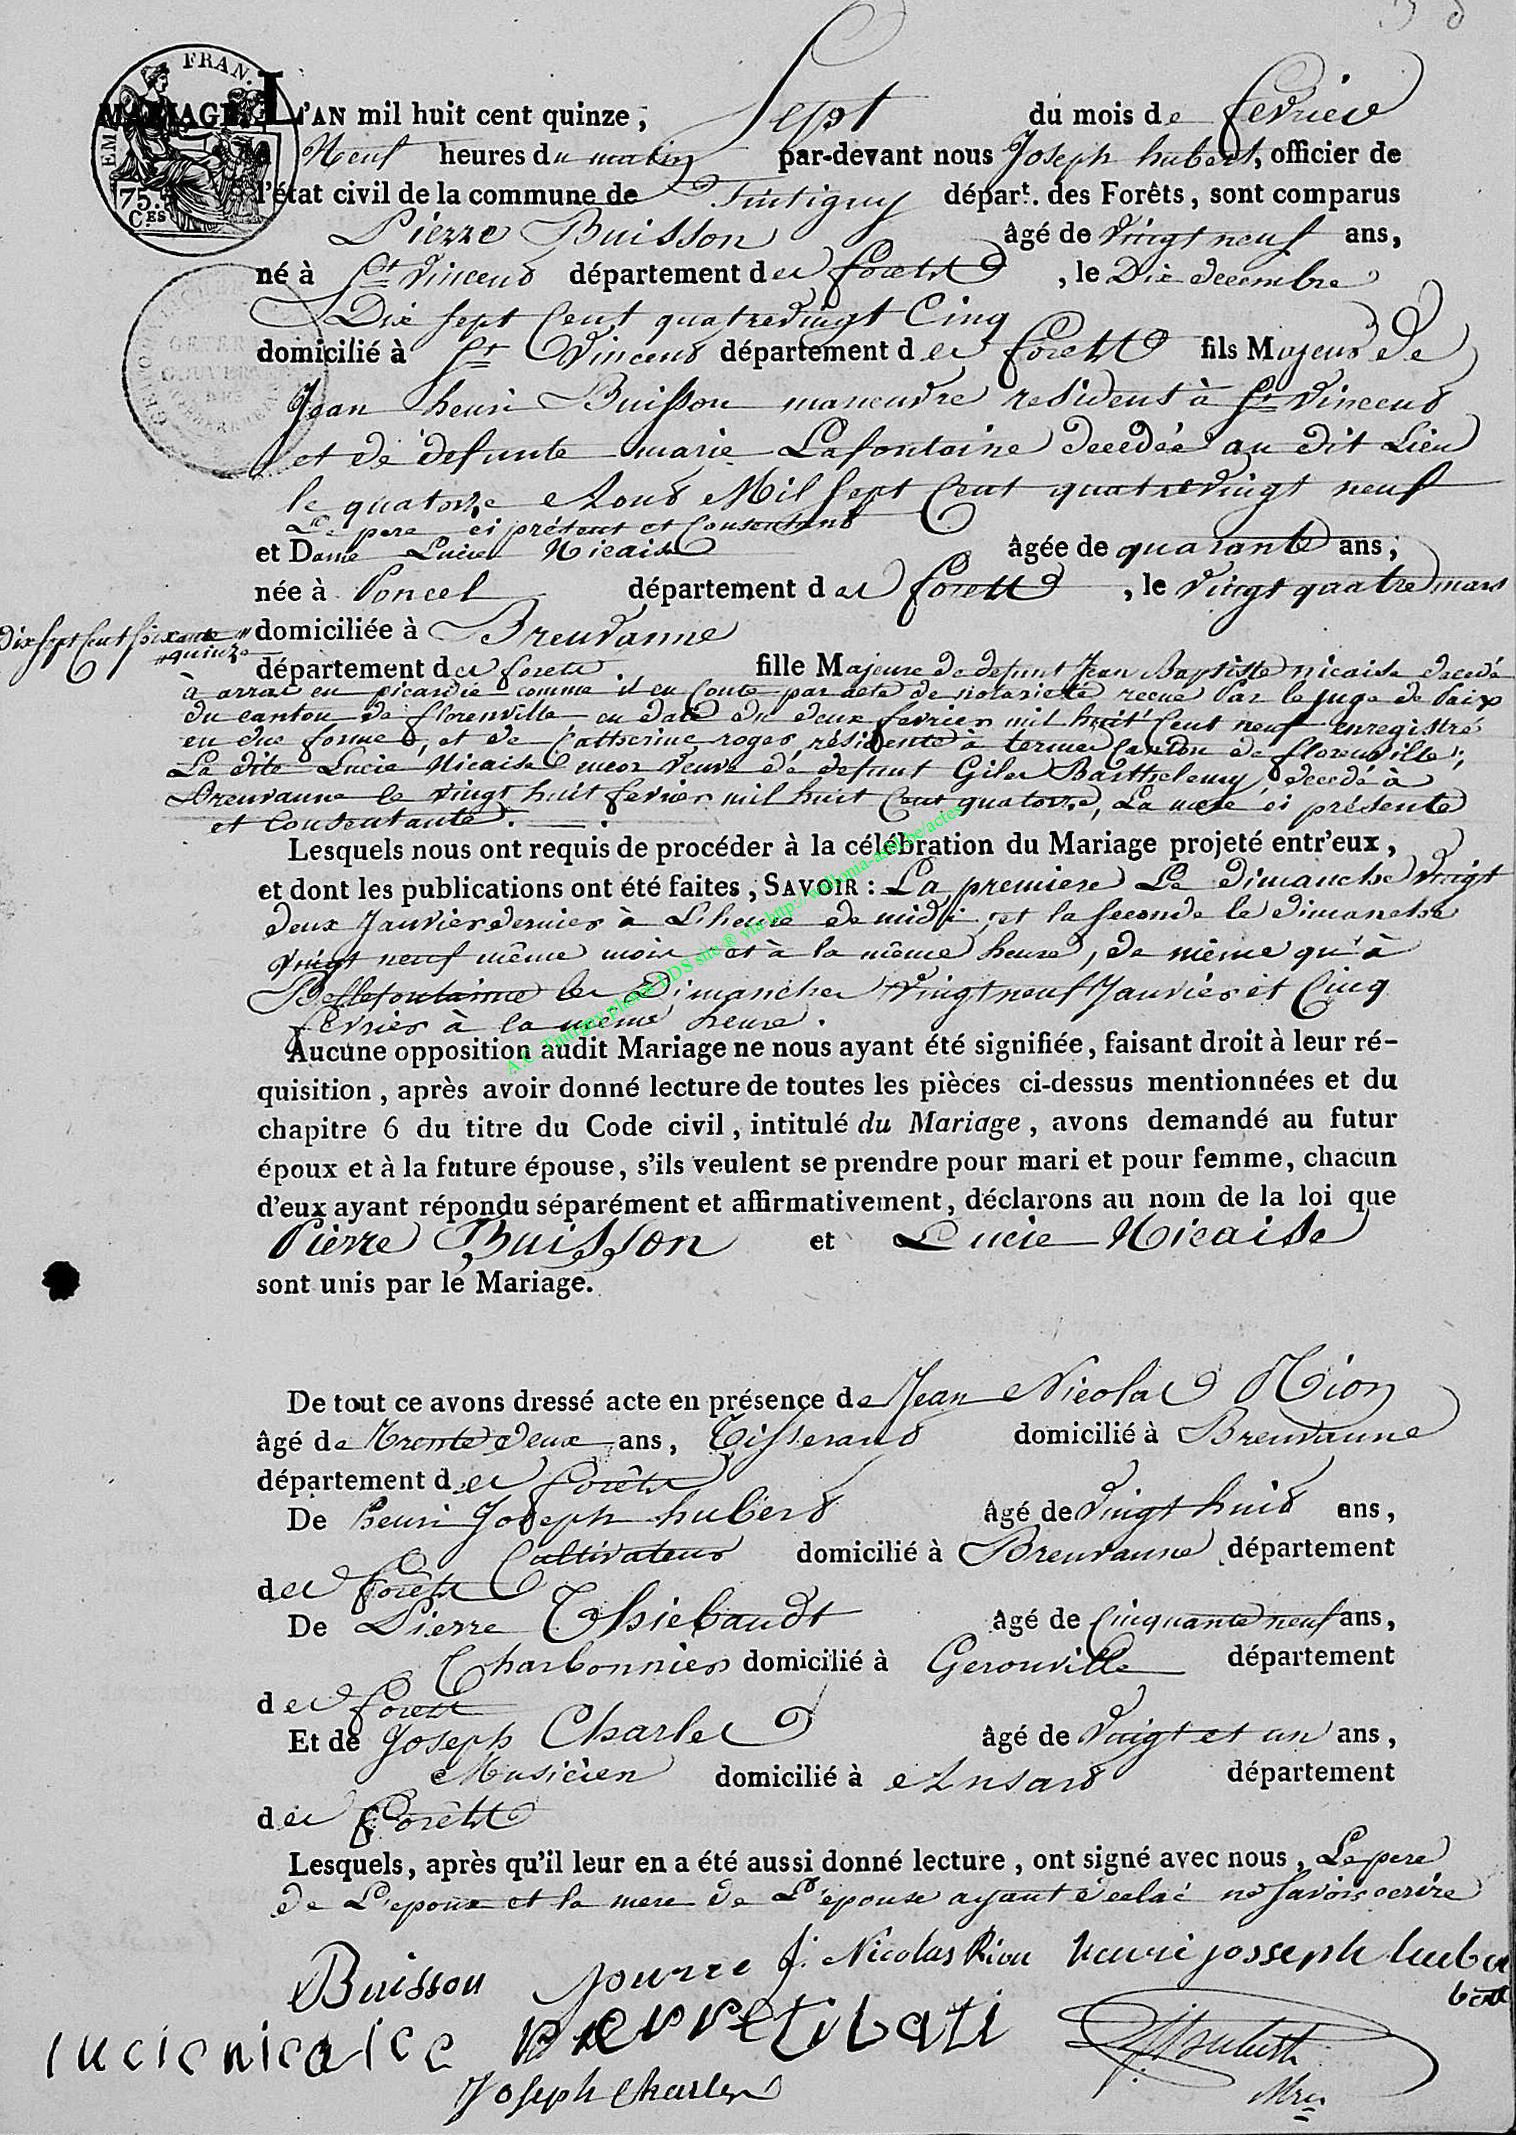 MARIAGE. L'AN mil huit cent quinze, Sept du mois de fevrier
a Neuf heures du matin par-devant nous Joseph hubert, officier de
l'état civil de la commune de Tintigny départ. des Forêts, sont comparus
Pierre Buisson âgé de vingt neuf ans,
né à St Vincend département des forêts, le Dix decembre
Dix Sept Cent quatrevingt Cinq
domicilié à St Vincend département des foretts fils Majeur de
Jean henri Buisson maneuvre residens à St Vincend
et de defunte marie Lafontaine decedée au dit Lieu
le quatorze Aoud Mil Sept Cent quatrevingt neuf
Le pere ci présent et Consentand
et Dame Lucie Nicaise âgée de quarante ans,
née à Poncel département des forett, le vingt quatre mars
Dix Sept Cent Soixante quinze
domiciliée à Breuvanne
département des forets. fille Majeure de defunt Jean Baptiste nicaise decedé
à arras en picardie comme il en Conte par acte de notariété recue par le juge de Paix
du canton de florenville en date du deux fevrier mil huit Cent neuf enregistré
en due forme, et de Catherine roger, résidente à termes Canton de florenville;
La dite Lucie Nicaise encor veuve de defunt Giles Barthelemy, decedé à
Breuvanne le vingt huit fevrier mil huit Cent quatorze, La mere ci présente
et Consentante.
Lesquels nous ont requis de procéder à la célébration du Mariage projeté entr'eux,
et dont les publications ont été faites, SAVOIR: La premiere Le dimanche vingt
deux Janvier dernier à L'heure de midi, et la seconde le dimanche
vingt neuf même mois et à la même heure, de même qu'à
Bellefontaine les Dimanches vingt neuf Janvier et Cinq
fevrier à la même heure.
Aucune opposition audit Mariage ne nous ayant été signifiée, faisant droit à leur ré-
quisition, après avoir donné lecture de toutes les pièces ci-dessus mentionnées et du
chapitre 6 du titre du Code civil, intitulé du Mariage, avons demandé au futur
époux et à la future épouse, s'ils veulent se prendre pour mari et pour femme, chacun
d'eux ayant répondu séparément et affirmativement, déclarons au nom de la loi que
Pierre Buisson et Lucie Nicaise
sont unis par le Mariage.
De tout ce avons dressé acte en présence de Jean Nicolas Rion
âgé de Trente deux ans, Tisserand domicilié à Breuvanne
département des forêts
De henri Joseph huberd âgé de Vingt huid ans,
Cultivateur domicilié à Breuvanne département
des forêts
De Pierre Thiebaudt âgé de Cinquante neuf ans,
Charbonnier domicilié à Gerouville département
des forett
Et de Joseph Charles âgé de Vingt et un ans,
Musicien domicilié à Ansard département
des forêts
Lesquels, après qu'il leur en a été aussi donné lecture, ont signé avec nous, Le pere
de L'epoux et la mere de L'epouse ayant declaé ne Savoir ecrire
Buisson J. Nicolas Rion henri josseph hube
bert
lucie nicaice
Joseph Charles JJ hubert
Mre
EM FRAN.
75. CES
A.C. Tintigny photos LDS site ® via http://wallonia-asbl.be/actes